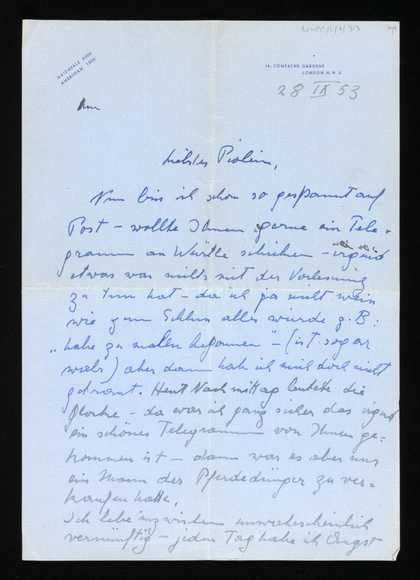 MAIDA VALE 7050
14, COMPAYNE GARDENS
LONDON N.W.6
28 IX 53
Liebster Piolin,
Nun bin ich schon so gespannt auf
Post – wollte Ihnen gerne ein Tele-
gramm an Würtle schicken – irgend
etwas was nichts mit der Vorlesung
zu tun hat – da ich ja nicht weiss
wie zum Schluss alles wurde z.B:
"habe zu malen begonnen" – (ist sogar
wahr) aber dann hab ich mich doch nicht
getraut. Heut Nachmittag läutete die
Glocke – da war ich ganz sicher das irgend
ein schönes Telegramm von Ihnen ge-
kommen ist – dann war es aber nur
ein Mann der Pferdedünger zu ver-
kaufen hatte.
Ich lebe inzwischen unwahrscheinlich
vernünftig – jeden Tag habe ich Angst